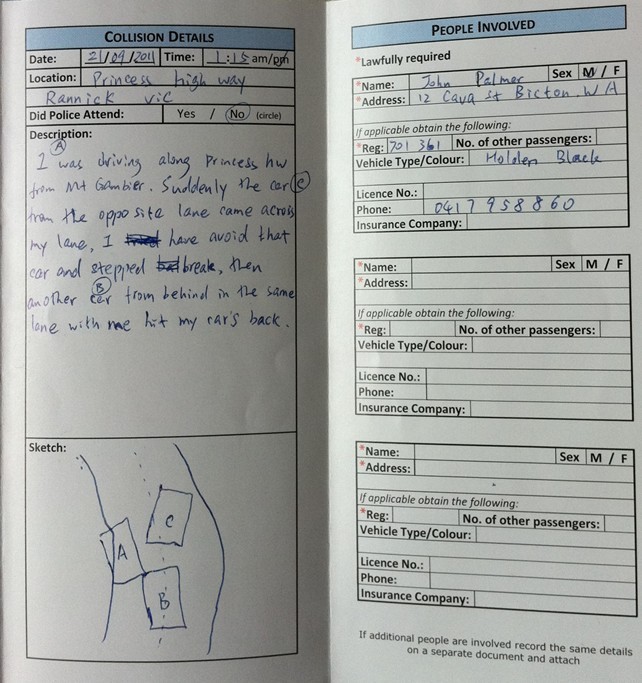 COLLISION DETAILS
Date: 21/09/2011 Time: 1:15 am/pm
Location: Princess high way
Rannick vic
Did Police Attend: Yes / No (circle)
Description:
A
I was driving along Princess hw
from Mt Gambier. Suddenly the car C
from the opposite lane came across
my lane, I have avoid that
car and stepped break, then
B
another car from behind in the same
lane with me hit my car's back.
Sketch:
C
A
B
PEOPLE INVOLVED
*Lawfully required
*Name: John Palmer Sex M / F
*Address: 12 Cava st Bicton WA
If applicable obtain the following:
*Reg: 701 361 No. of other passengers:
Vehicle Type/Colour: Holden Black
Licence No.:
Phone: 0417 958860
Insurance Company:
*Name: Sex M / F
*Address:
If applicable obtain the following:
*Reg: No. of other passengers:
Vehicle Type/Colour:
Licence No.:
Phone:
Insurance Company:
*Name: Sex M / F
*Address:
If applicable obtain the following:
*Reg: No. of other passengers:
Vehicle Type/Colour:
Licence No.:
Phone:
Insurance Company:
If additional people are involved record the same details
on a separate document and attach